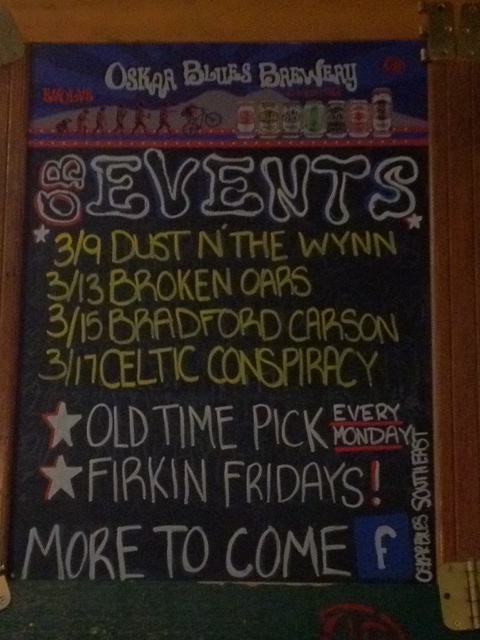 OSKAR BLUES BREWERY
EVOLVE
OB EVENTS
3/9 DUST N' THE WYNN
3/13 BROKEN OARS
3/15 BRADFORD CARSON
3/17 CELTIC CONSPIRACY
OLD TIME PICK EVERY MONDAY
FIRKIN FRIDAYS!
MORE TO COME f